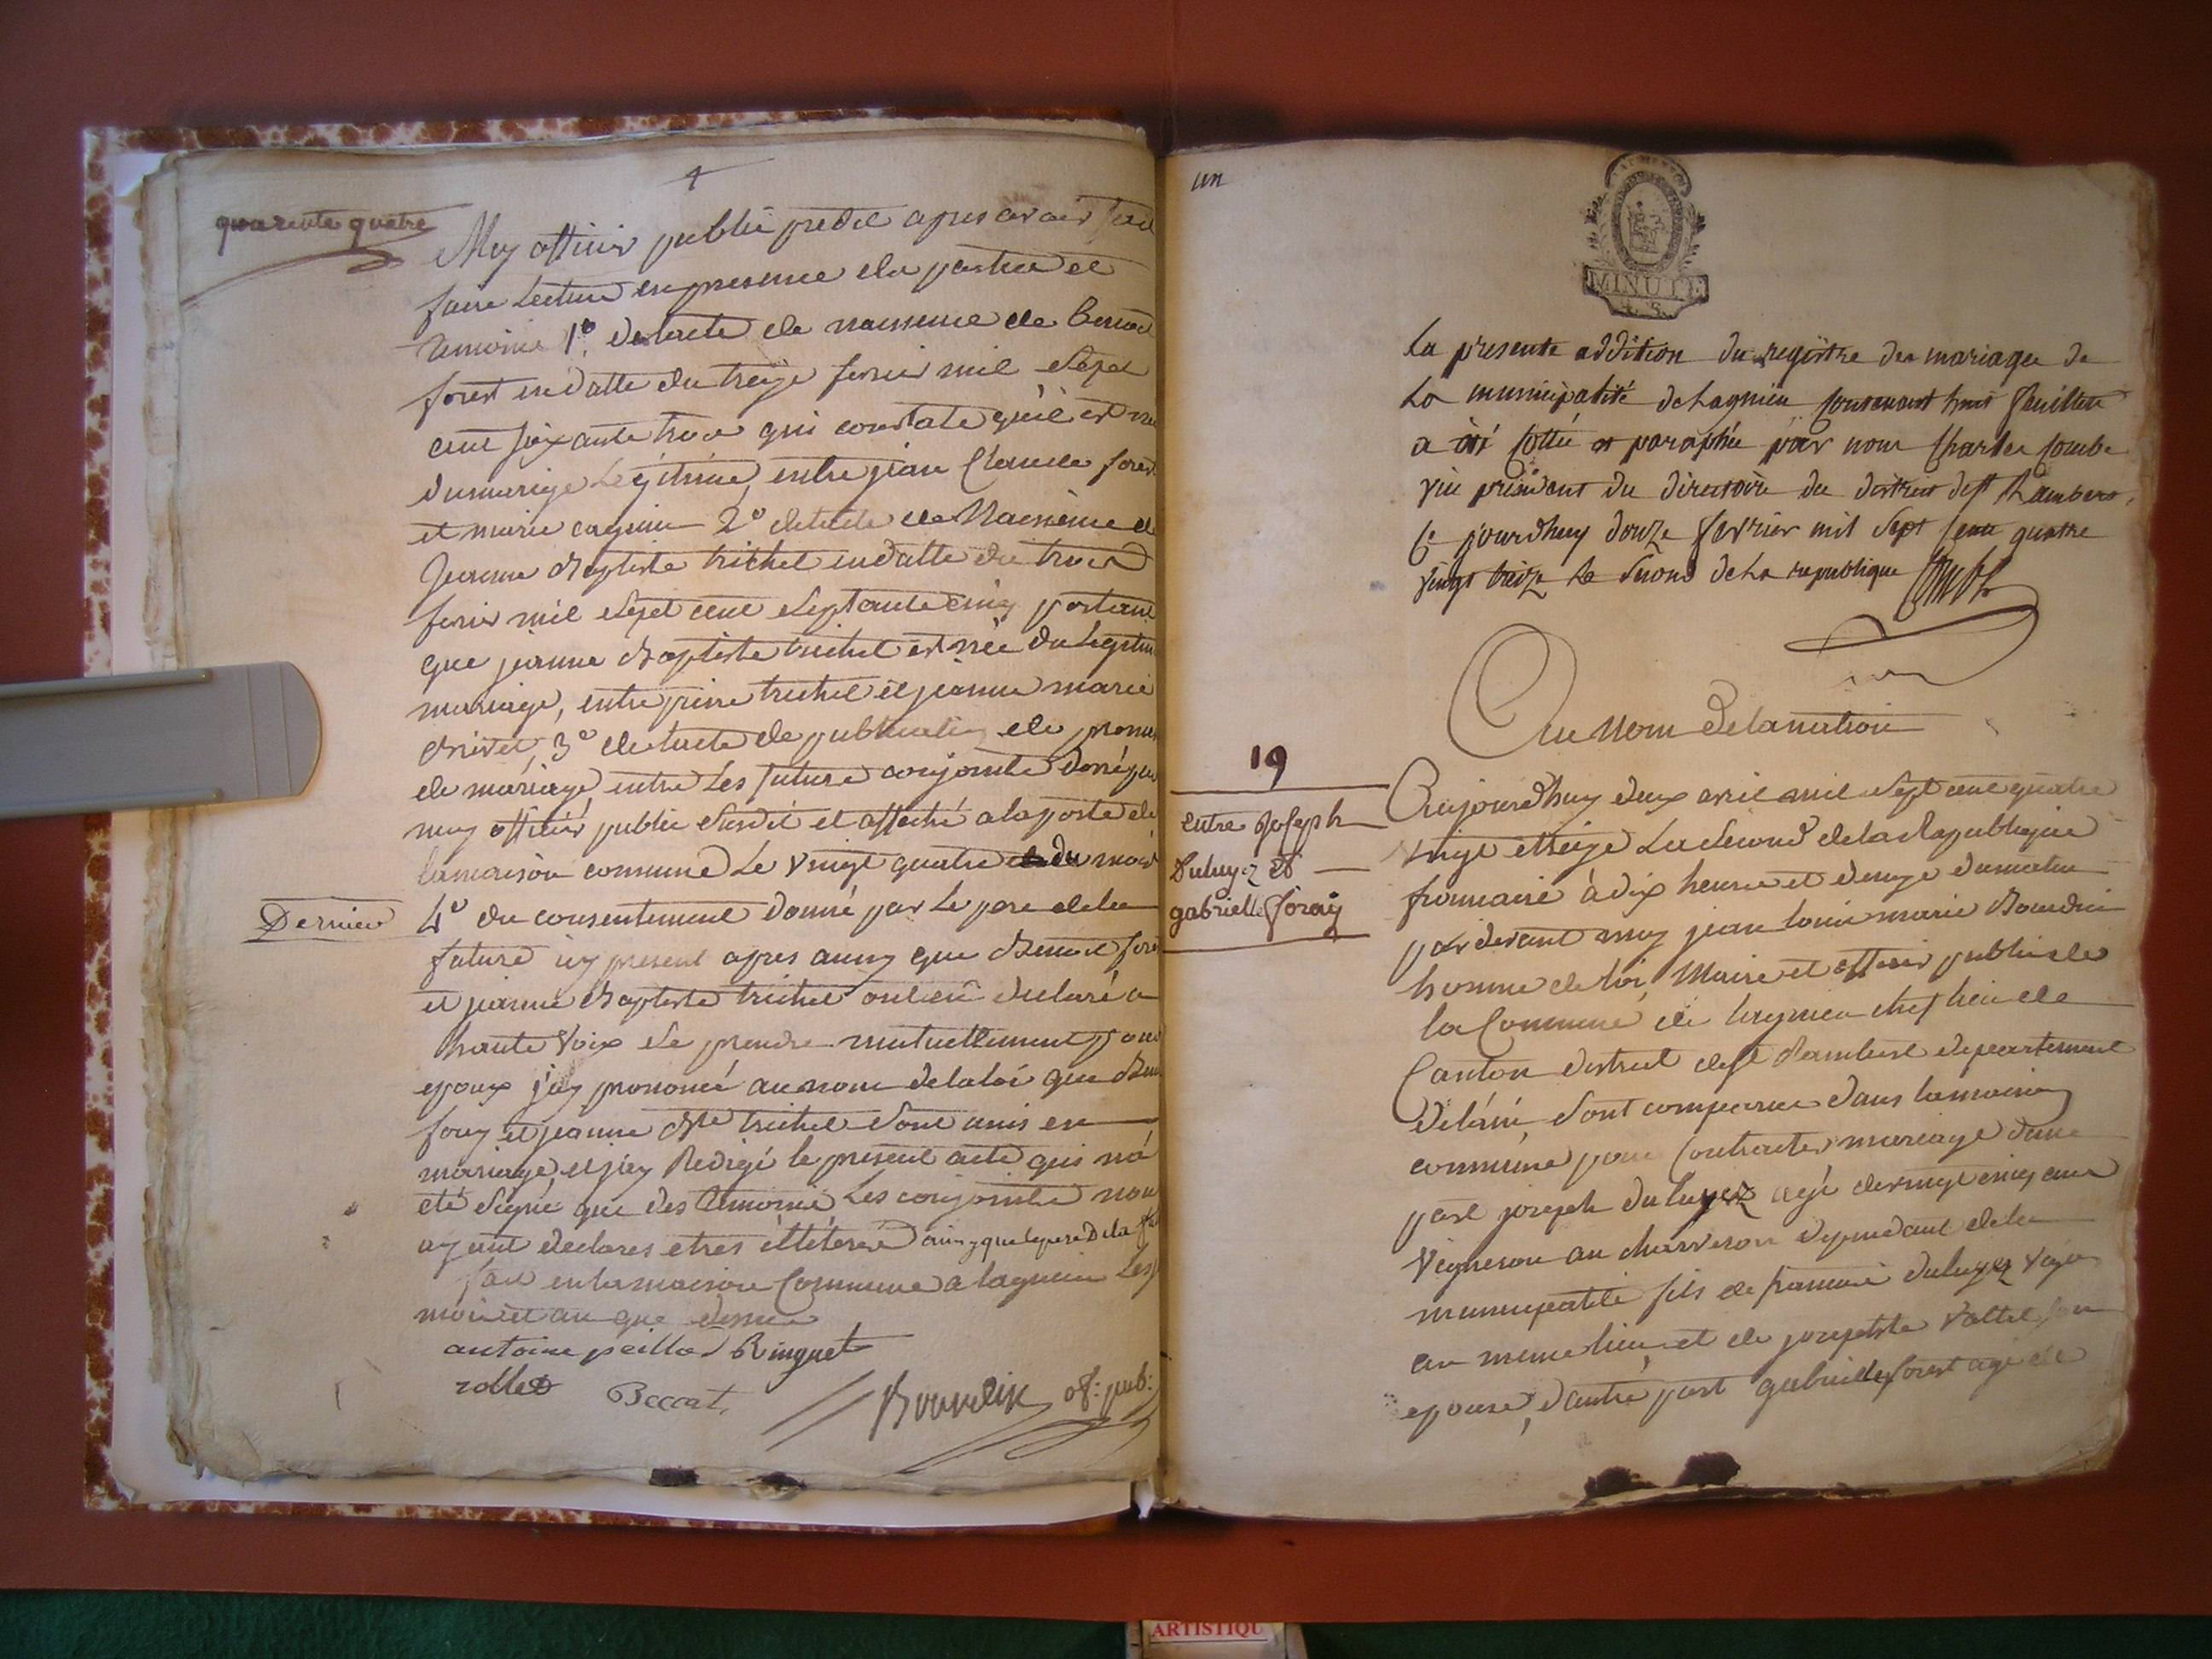 quarente quatre
Moy officier public predit apres avoir fait
faire lecture en presence des parties et
temoins 1o de lacte de naissence de Benoit
forest en datte du treize fevrier mil sept
cent soixante trois qui constate qu'il est né
du mariage Legitime entre jean Claude forest
et marie 2o de lacte de Naissence de
Jeanne Baptiste trichel en datte du trois
fevrier mil sept cent septante cinq portant
que jeanne Baptiste trichel est née du legitime
mariage, entre pierre trichel et jeanne marie
3o de lacte de publication de promesse
de mariage entre Les futurs conjoints dressé par
moy officier public susdit et affiché a la porte de
la maison commune Le vingt quatre du mois
Dernier
4o du consentement donné par Le pere de la
future icy present apres aussy que Benoit forest
et jeanne Baptiste trichel ont eu declaré a
haute voix se prendre mutuellement pour
epoux j'ay prononcé au nom de la loi que Benoit
foray et jeanne Bte trichel sont unis en
mariage, et j'ay Redigé le present acte qui n'a
eté signé que des temoins Les conjoints nous
ayant declarés etres illeterés ainsy que le pere De la
fait en la maison Commune a lagnieu Les
mois et an que dessus
antoine peillod Ringuet
rollet Beccat
Bourdin of: pub:
un
MINUTE
La presente addition du registre des mariages de
La municipalité de Lagnieu contenant huit feuillets
a été cottée et paraphée par nous Charles Combe
vice président du directoire du district de St Rambert,
Ce jourdhuy douze fevrier mil sept cent quatre
vingt treize Le second de La republique
Au Nom de la nation
19
entre Joseph
Duluyez et
gabrielle foray
Aujourdhuy deux avril mil sept cent quatre
vingt et treize La second de la Republique
francaise à dix heures et demye du matin
par devant moy jean louis marie Bourdin
homme de loi, Maire et officier public de
la Commune de lagnieu chef lieu de
Canton district de St Rambert departement
de l'ain, sont comparus dans la maison
commune pour Contracter mariage d'une
part joseph duluyez agé de vingt cinq ans
vigneron au charveron dependant de la
municipalité fils de francois duluyez vign
au meme lieu, et de josephte vallet son
epouse, d'autre part gabrielle forest agée de
ARTISTIQU